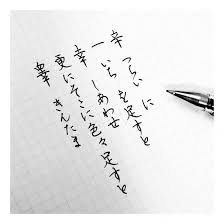 辛 つらい に
一 いち を足すと
幸 しあわせ
更にそこに色々足すと
睾 きんたま